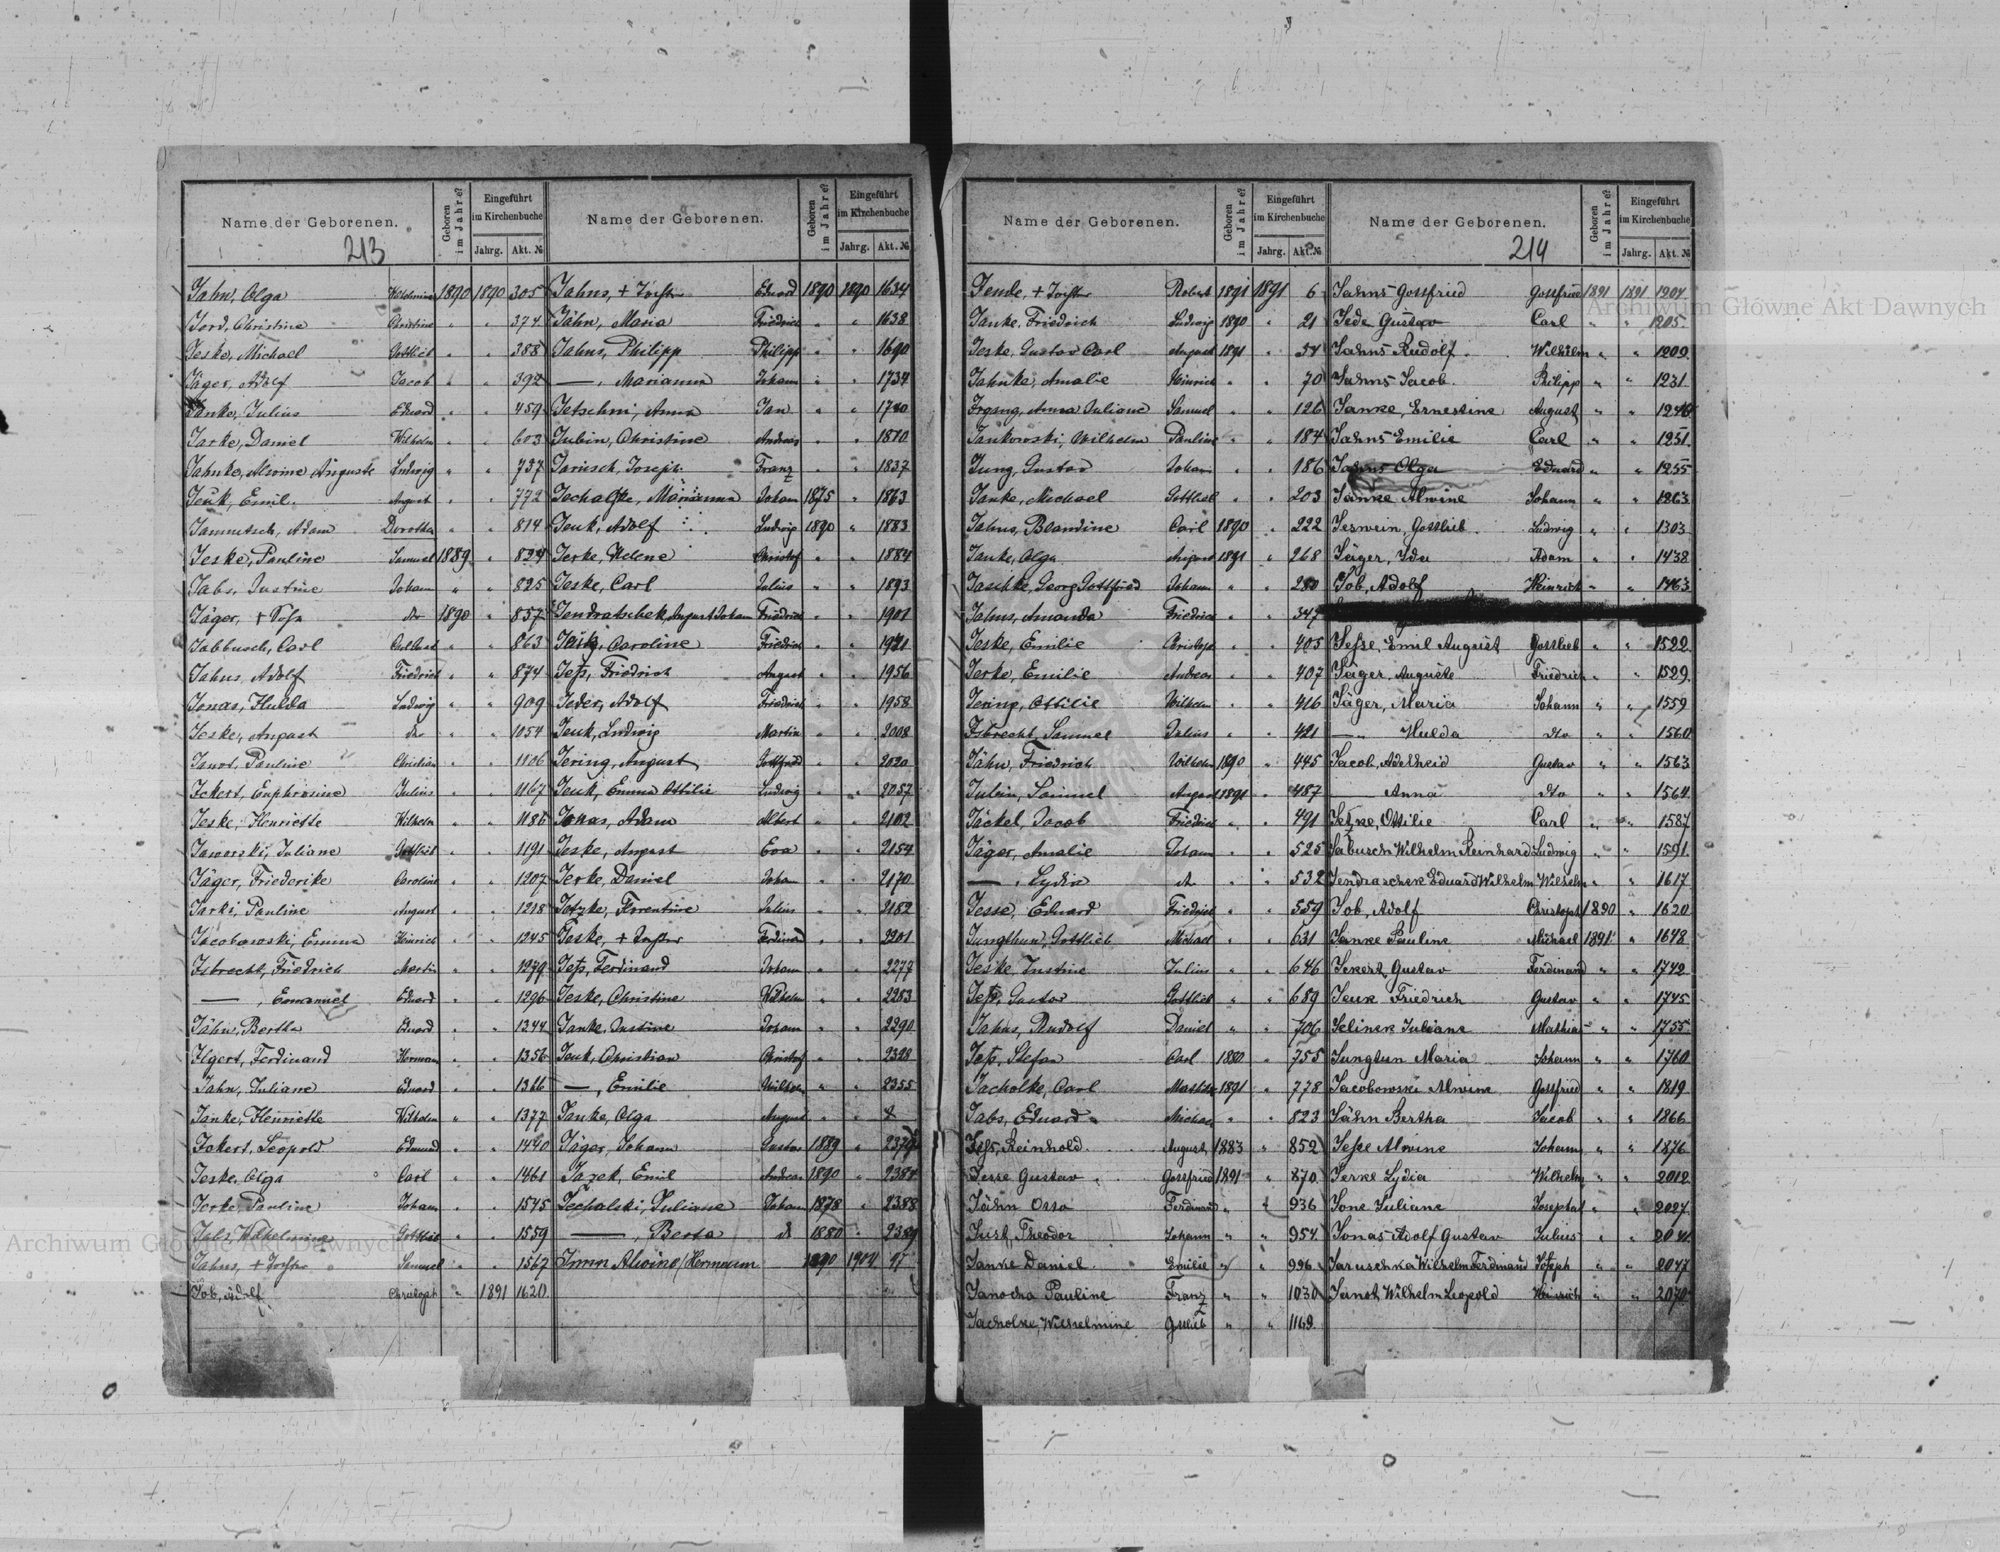 Name der Geborenen. Geboren im Jahre? Eingeführt im Kirchenbuche Jahrg. Akt. № Name der Geborenen. Geboren im Jahre? Eingeführt im Kirchenbuche Jahrg. Akt. №
213
Jahn, Olga Wilhelmine 1890 1890 305
Jord, Christine Christine " " 374
Jeske, Michael Gottlieb " " 388
Jäger, Adolf Jacob " " 392
Janke, Julius Eduard " " 459
Jarke, Daniel Wilhelm " " 603
Jahnke, Alwine Auguste Ludwig " " 737
Jeuk, Emil August " " 772
Jamnitsch, Adam Dorothea " " 814
Jeske, Pauline Samuel 1889 " 824
Jabs, Justine Johann " " 825
Jäger, + Sohn dto 1890 " 857
Jabbusch, Carl " " 863
Jahns, Adolf Friedrich " " 874
Jonas, Hulda Ludwig " " 909
Jeske, August dto " " 1054
Janot, Pauline Christian " " 1106
Ickert, Euphrosine Julius " " 1167
Jeske, Henriette Wilhelm " " 1186
Jaworski, Juliane Gottlieb " " 1191
Jäger, Friederike Caroline " " 1207
Jarki, Pauline August " " 1218
Jacobowski, Emma Heinrich " " 1245
Isbrecht, Friedrich Martin " " 1279
—, Emanuel Eduard " " 1296
Jähn, Bertha Eduard " " 1344
Ilgert, Ferdinand Herman " " 1356
Jahn, Juliane Eduard " " 1366
Janke, Henriette Wilhelm " " 1377
Jakert, Leopold Edmund " " 1440
Jeske, Olga Carl " " 1461
Jerke, Pauline Johann " " 1545
Jabs, Wilhelmine Gottlieb " " 1559
Jahns, + Tochter Samuel " " 1567
Job, Adolf Christoph " 1891 1620
Jahns, + Tochter Eduard 1890 1890 1634
Jähn, Maria Friedrich " " 1638
Jahns, Philipp Philipp " " 1690
—, Marianna Johann " " 1734
Jetschni, Anna Jan " " 1740
Jubin, Christine Andreas " " 1810
Jarusch, Joseph Franz " " 1837
Jechalke, Marianna Johann 1875 " 1863
Jeuk, Adolf Ludwig 1890 " 1883
Jerke, Helene Christof " " 1884
Jeske, Carl Julius " " 1893
Jendratschek, August Johann Friedrich " " 1901
Caroline Friedrich " " 1921
Jeß, Friedrich August " " 1956
Jeder, Adolf Friedrich " " 1958
Jeuk, Ludwig Martin " " 2008
Jering, August Gottfried " " 2020
Jeuk, Emma Ottilie Ludwig " " 2057
Jonas, Adam Albert " " 2102
Jeske, August Eva " " 2154
Jerke, Daniel Johann " " 2170
Jetzke, Florentine Julius " " 2182
Jeske, + Tochter Ferdinand " " 2201
Jeß, Ferdinand Johann " " 2277
Jeske, Christine Wilhelm " " 2283
Janke, Justine Johann " " 2290
Jeuk, Christian Christof " " 2328
—, Emilie Wilhelm " " 2355
Janke, Olga August " "
Jäger, Johann Gustav 1889 " 2379
Jazek, Emil Andreas 1890 " 2384
Jechalski, Juliane Johann 1878 " 2388
—, Berta dto 1880 " 2389
Imm Alwine/Hermann 1890 1904 97
Name der Geborenen. Geboren im Jahre? Eingeführt im Kirchenbuche Jahrg. Akt. № Name der Geborenen. Geboren im Jahre? Eingeführt im Kirchenbuche Jahrg. Akt. №
214
Jende, + Tochter Robert 1891 1891 6
Janke, Friedrich Ludwig 1890 " 21
Jeske, Gustav Carl August 1891 " 54
Jahnke, Amalie Heinrich " " 70
Irgang, Anna Juliane Samuel " " 126
Jankowski, Wilhelm Pauline " " 184
Jung, Gustav Johann " " 186
Janke, Michael Gottlieb " " 203
Jahns, Blandine Carl 1890 " 222
Janke, Olga August 1891 " 268
Jaschke, Georg Gottfried Johann " " 280
Jahns, Amanda Friedrich " " 347
Jeske, Emilie Christoph " " 405
Jerke, Emilie Andreas " " 407
Jering, Ottilie Wilhelm " " 416
Isbrecht, Samuel Julius " " 421
Jähn, Friedrich Wilhelm 1890 " 445
Jubin, Samuel August 1891 " 487
Jäckel, Jacob Friedrich " " 491
Jäger, Amalie Johann " " 525
—, Lydia dto " " 532
Jesse, Eduard Friedrich " " 559
Jungthun, Gottlieb Michael " " 631
Jeske, Justine Julius " " 646
Jeß, Gustav Gottlieb " " 689
Jahns, Rudolf Daniel " " 706
Jeß, Stefan Carl 1880 " 755
Jacholke, Carl Mathilde 1891 " 778
Jabs, Eduard Michael " " 823
Jeß, Reinhold August 1883 " 852
Jesse Gustav Gottfried 1891 " 870
Jähn Otto Ferdinand " " 936
Just, Theodor Johann " " 954
Janke Daniel Emilie " " 996
Janocha Pauline Franz " " 1030
Jacholke, Wilhelmine Gottlieb " " 1169
Jahns Gottfried Gottfried 1891 1891 1204
Jede Gustav Carl " " 1205
Jahns Rudolf Wilhelm " " 1209
Jahns Jacob Philipp " " 1231
Janke, Ernestine August " " 1246
Jahns Emilie Carl " " 1251
Jahns Olga Eduard " " 1255
Janke Alwine Johann " " 1263
Jeswein, Gottlieb Ludwig " " 1303
Jäger, Ida Adam " " 1438
Job, Adolf Heinrich " " 1463
Jeße, Emil August Gottlieb " " 1522
Jäger, Auguste Friedrich " " 1529
Jäger, Maria Johann " " 1559
—"— Hulda dto " " 1560
Jacob, Adelheid Gustav " " 1563
— Anna dto " " 1564
Jetzke, Ottilie Carl " " 1587
Jabusch Wilhelm Reinhard Ludwig " " 1591
Jendraschek Eduard Wilhelm Wilhelm " " 1617
Job, Adolf Christoph 1890 " 1620
Janke Pauline Michael 1891 " 1648
Jekert, Gustav Ferdinand " " 1742
Jeuk Friedrich Gustav " " 1745
Jelinek Juliane Mathias " " 1755
Jungtun Maria Johann " " 1760
Jacobowski Alwine Gottfried " " 1819
Jähn Bertha Jacob " " 1866
Jeße Alwine Johann " " 1876
Jerke Lydia Wilhelm " " 2012
Jone Juliane Josepha " " 2027
Jonas Adolf Gustav Julius " " 2041
Jaruschka Wilhelm Ferdinand Joseph " " 2047
Janot, Wilhelm Leopold Heinrich " " 2070
Archiwum Główne Akt Dawnych
Archiwum Główne Akt Dawnych